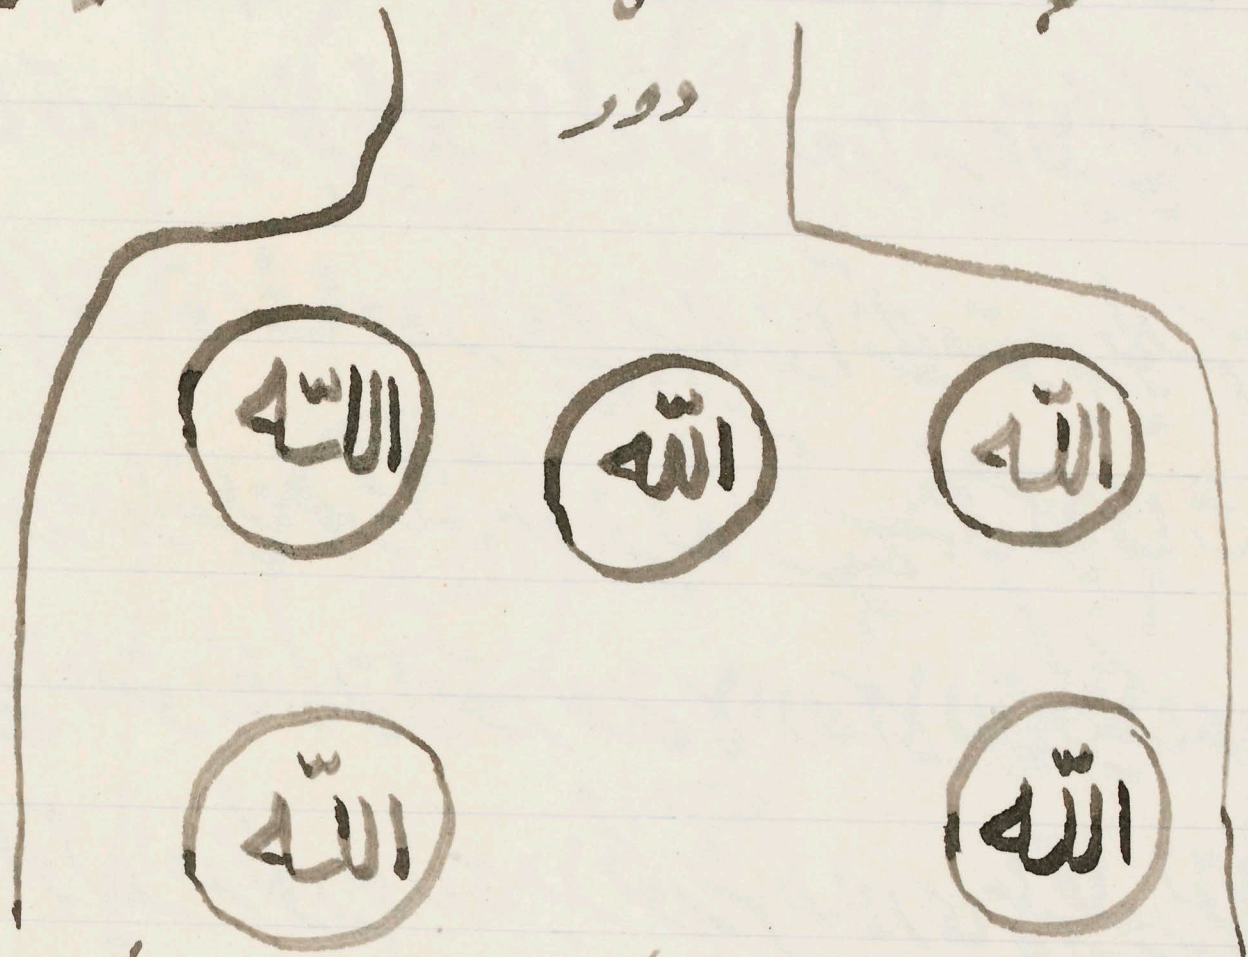 دور
الله الله الله
الله الله